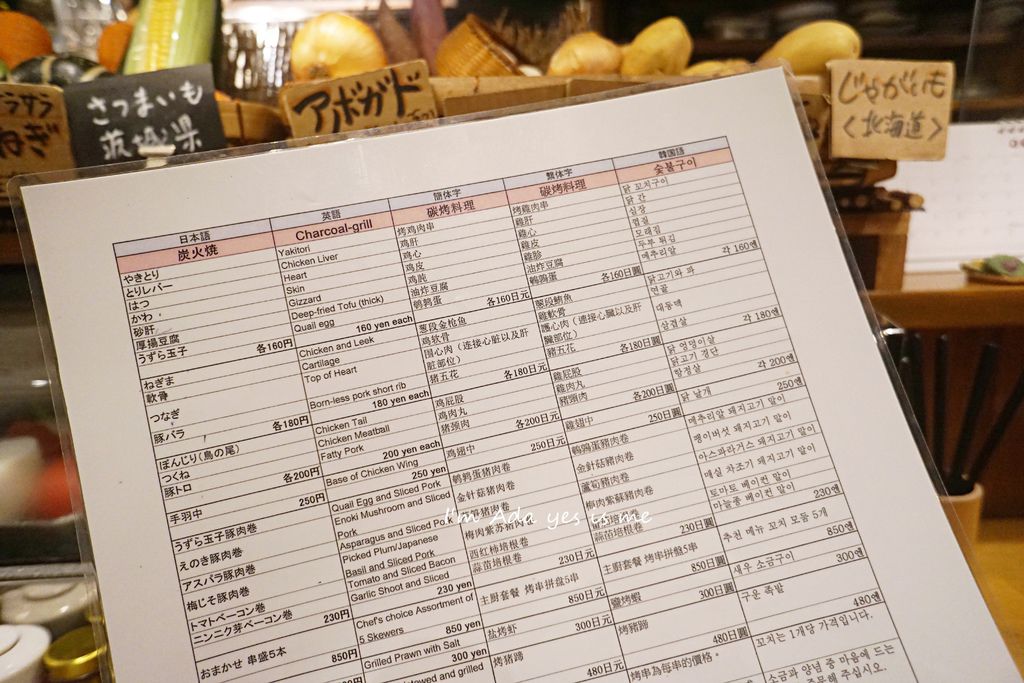 さつまいも
茨城県
アボガド
じゃがいも
<北海道>
日本語 英語 簡体字 繁体字 韓国語
炭火焼 Charcoal-grill 碳烤料理 碳烤料理 숯불구이
やきとり Yakitori 烤鸡肉串 烤雞肉串 닭 꼬치구이
とりレバー Chicken Liver 鸡肝 雞肝 닭 간
はつ Heart 鸡心 雞心 심장
かわ Skin 鸡皮 雞皮 껍질
砂肝 Gizzard 鸡肫 雞胗 모래집
厚揚豆腐 Deep-fried Tofu (thick) 油炸豆腐 油炸豆腐 두부 튀김
うずら玉子 Quail egg 鹌鹑蛋 鵪鶉蛋 메추리알
各160円 160 yen each 各160日元 各160日圓 각 160엔
ねぎま Chicken and Leek 葱段金枪鱼 蔥段鮪魚 닭고기와 파
軟骨 Cartilage 鸡软骨 雞軟骨 연골
つなぎ Top of Heart 围心肉（连接心脏以及肝脏部位） 護心肉（連接心臟以及肝臟部位） 대동맥
豚バラ Born-less pork short rib 猪五花 豬五花 삼겹살
各180円 180 yen each 各180日元 各180日圓 각 180엔
ぼんじり（鳥の尾） Chicken Tail 鸡屁股 雞屁股 닭 엉덩이살
つくね Chicken Meatball 鸡肉丸 雞肉丸 닭고기 경단
豚トロ Fatty Pork 猪颈肉 豬頸肉 항정살
各200円 200 yen each 各200日元 各200日圓 각 200엔
手羽中 Base of Chicken Wing 鸡翅中 雞翅中 닭 날개
250円 250 yen 250日元 250日圓 250엔
うずら玉子豚肉巻 Quail Egg and Sliced Pork 鹌鹑蛋猪肉卷 鵪鶉蛋豬肉卷 메추리알 돼지고기 말이
えのき豚肉巻 Enoki Mushroom and Sliced Pork 金针菇猪肉卷 金針菇豬肉卷 팽이버섯 돼지고기 말이
アスパラ豚肉巻 Asparagus and Sliced Pork 蘆筍豬肉卷 아스파라거스 돼지고기 말이
梅じそ豚肉巻 Picked Plum/Japanese Basil and Sliced Pork 梅肉紫苏猪肉卷 梅肉紫蘇豬肉卷 매실 차조기 돼지고기 말이
トマトベーコン巻 Tomato and Sliced Bacon 西红柿培根卷 토마토 베이컨 말이
ニンニク芽ベーコン巻 Garlic Shoot and Sliced 蒜苔培根卷 蒜苗培根卷 마늘종 베이컨 말이
230円 230 yen 230日元 230日圓 230엔
おまかせ 串盛5本 Chef's choice Assortment of 5 Skewers 主厨套餐 烤串拼盘5串 主廚套餐 烤串拼盤5串 추천 메뉴 꼬치 모둠 5개
850円 850 yen 850日元 850日圓 850엔
Grilled Prawn with Salt 盐烤虾 鹽烤蝦 새우 소금구이
300 yen 300日元 300日圓 300엔
and grilled 烤猪蹄 烤豬蹄 구운 족발
480日元 480日圓 480엔
烤串為每串的價格。 꼬치는 1개당 가격입니다.
소금과 양념 중 마음에 드는
주문해 주십시오.
I'm Ada yes is me